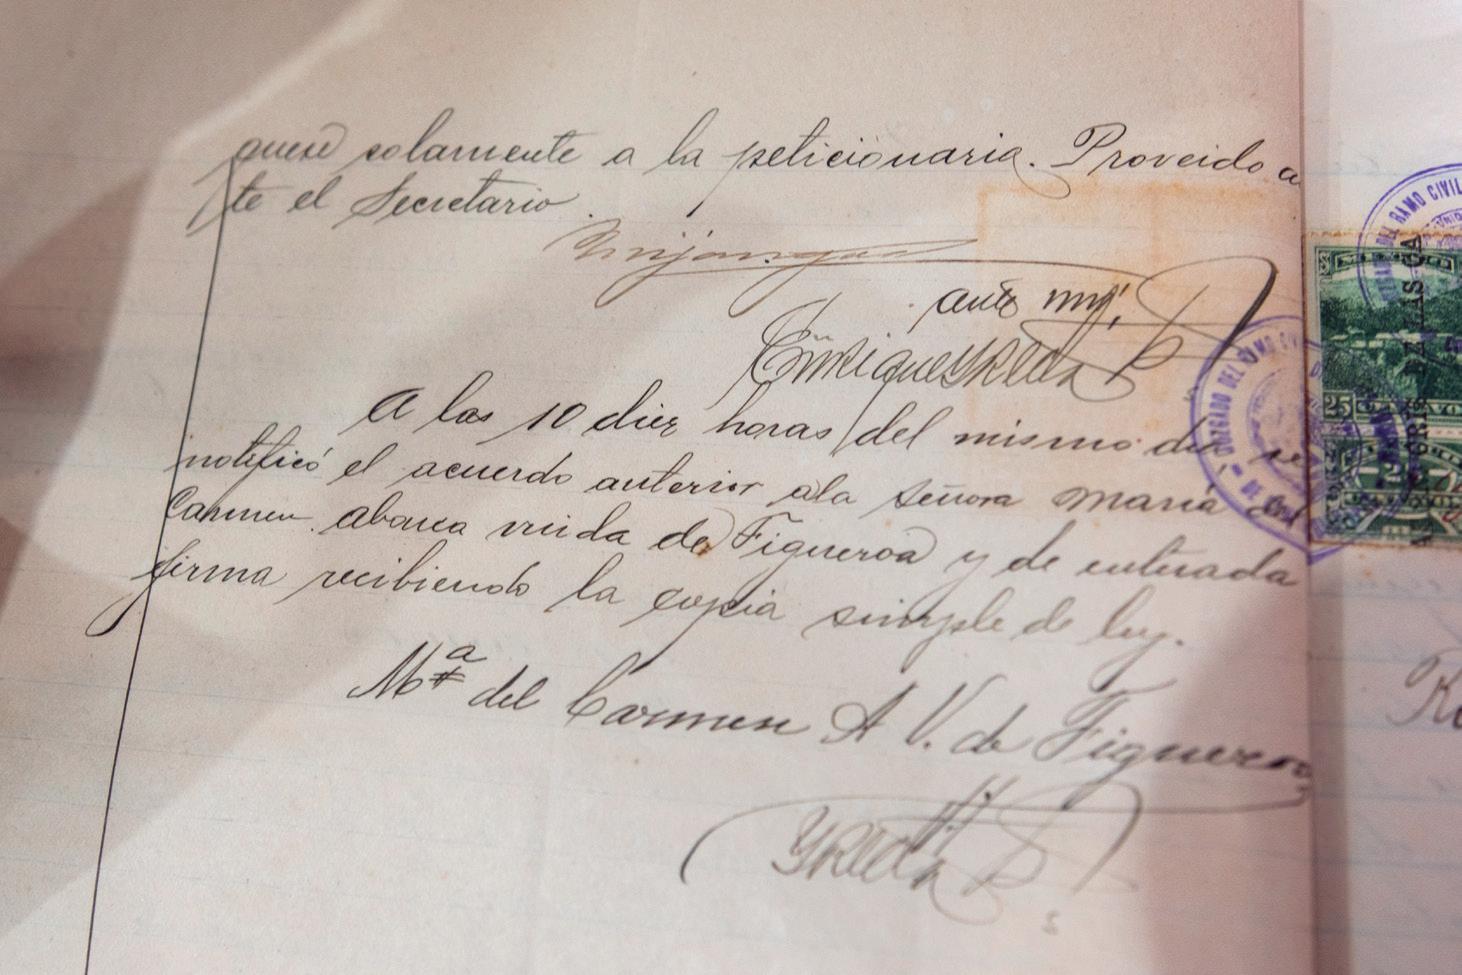 quese solamente a la peticionaria. Proveido an
te el Secretario.
Mijangos
ante mi,
Enrique
A las 10 diez horas del mismo dia se
notificó el acuerdo anterior a la señora Maria del
Carmen Abarca viuda de Figueroa y de enterada
firma recibiendo la copia simple de ley.
Mª del Carmen A V. de Figueroa
JUZGADO DEL RAMO CIVIL
DEL RAMO CIVIL
25